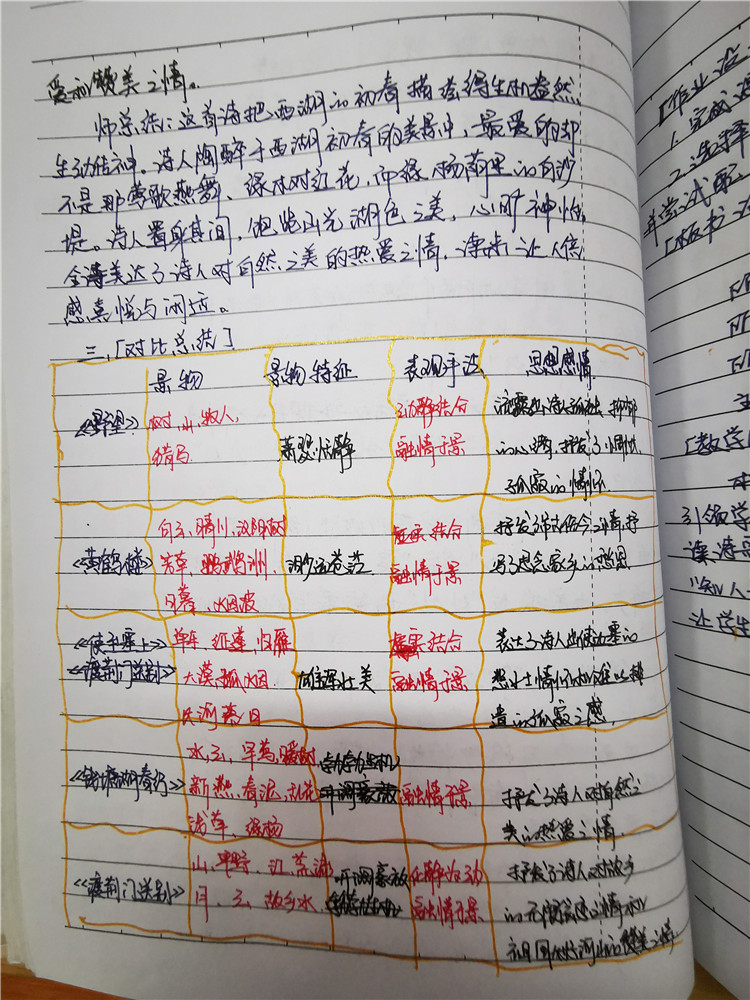 爱和赞美之情。
师总结:这首诗把西湖的初春描绘得生机盎然,
生动传神。诗人陶醉于西湖初春的美景中,最爱的却
不是那莺歌燕舞、绿木对红花,而绿杨荫里的白沙
堤。诗人置身其间,饱览山光湖色之美,心旷神怡,
全诗表达了诗人对自然之美的热爱之情,读来让人倍
感喜悦与闲适。
三、[对比总结]
景物 景物特征 表现手法 思想感情
《野望》 树、山、牧人、 动静结合 流露出诗人孤独、抑郁
猎马 萧瑟、恬静 融情于景 的心绪,抒发了惆怅、
孤寂的情怀
白云、晴川、汉阳树 虚实结合 抒发吊古伤今之情,抒
《黄鹤楼》 芳草、鹦鹉洲、 渺远苍茫 融情于景 写了思念家乡的愁思
日暮、烟波
《使至塞上》 单车、征蓬、归雁 虚实结合 表达了诗人出使边塞的
《渡荆门送别》 大漠孤烟 雄浑壮美 融情于景 悲壮情怀和难以排
长河落日 遣的孤寂之感
水、云、早莺、暖树
《钱塘湖春行》 新燕、春泥、乱花 开阔豪放 融情于景 抒发了诗人对自然之
浅草、绿杨 美的热爱之情
山、平野、江、荒漠 开阔豪放 化静为动 抒发了诗人对故乡
《渡荆门送别》 月、云、故乡水 生机 融情于景 的无限留恋之情和
祖国大好河山的赞美之情
[作业布
1.完成
2.选择
并尝试
[板书设
[教学
引领学
读诗
"知人
让学生